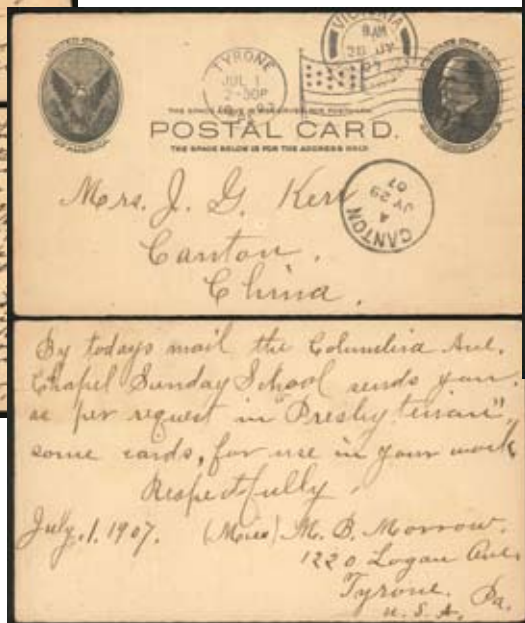 UNITED STATES
OF AMERICA
TYRONE
JUL 1
2-30P
VICTORIA
8 AM
28 JY
07
POSTAL CARD.
THE SPACE BELOW IS FOR THE ADDRESS ONLY.
Mrs. J. G. Kerr
Canton,
China.
CANTON
4
JY 29
07
By todays mail the Columbia Ave.
Chapel Sunday School sends you,
as per request in "Presbyterian",
some cards, for use in your work
Respectfully,
July. 1. 1907. (Miss) M. B. Morrow.
1220 Logan Ave.
Tyrone, Pa.
U. S. A.